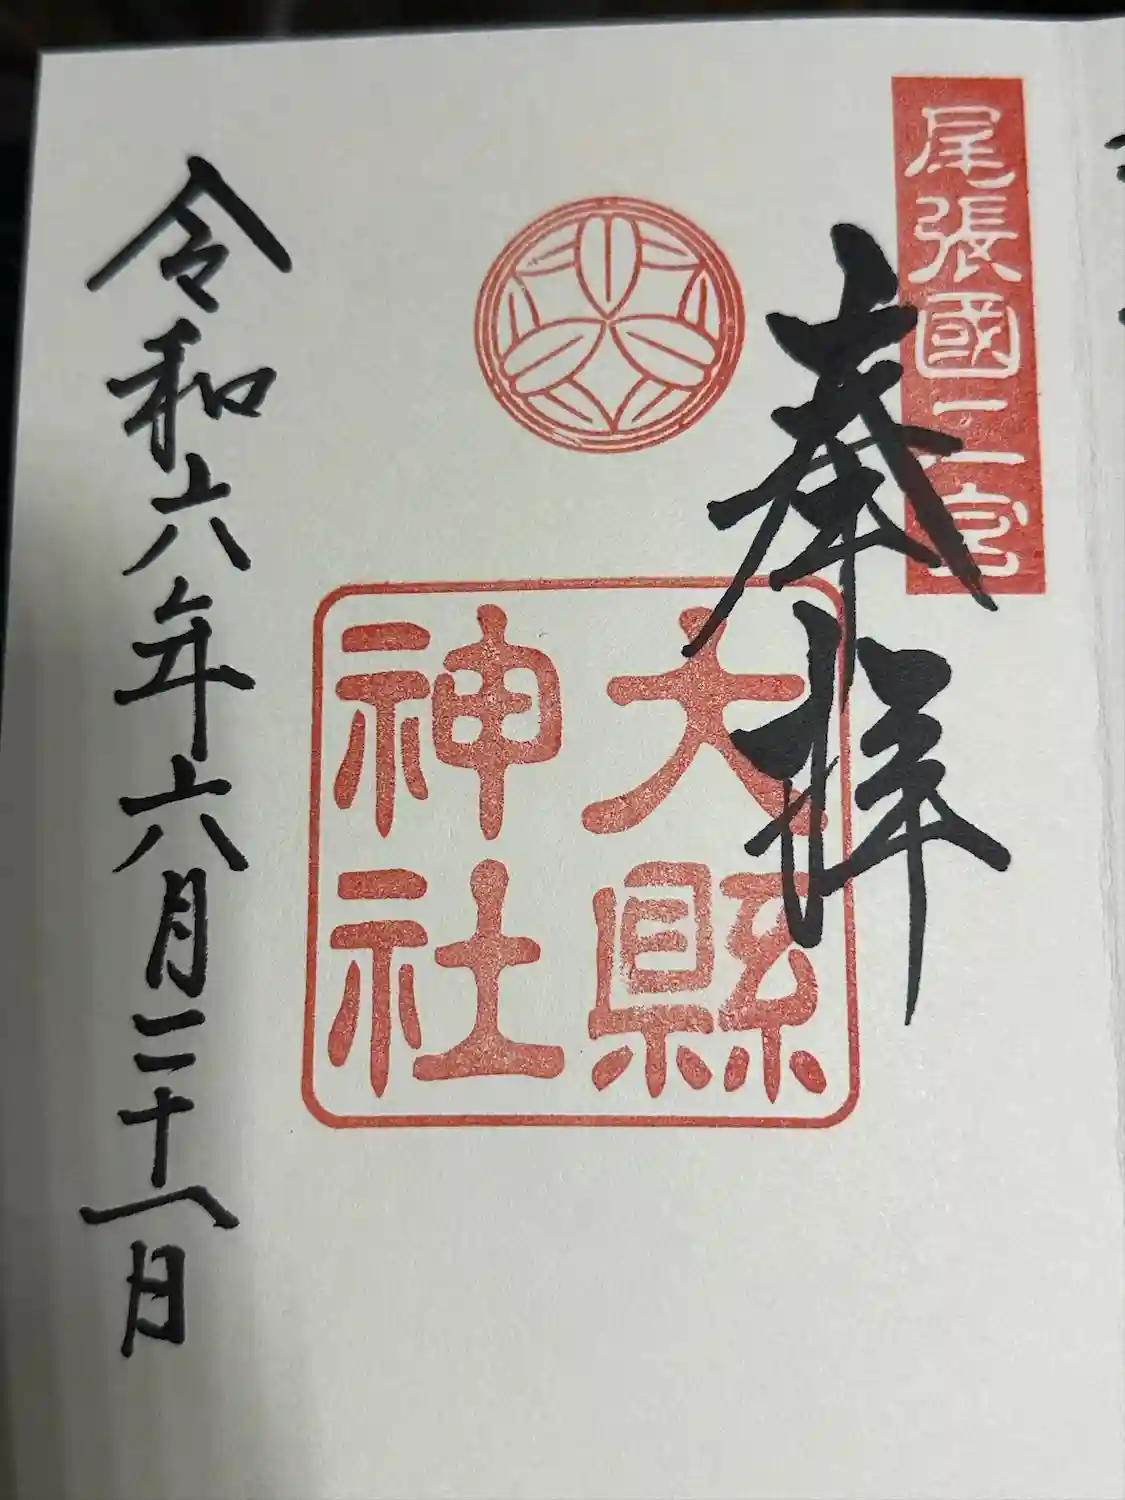 尾張國二宮
奉拝
大縣
神社
令和六年六月二十八日